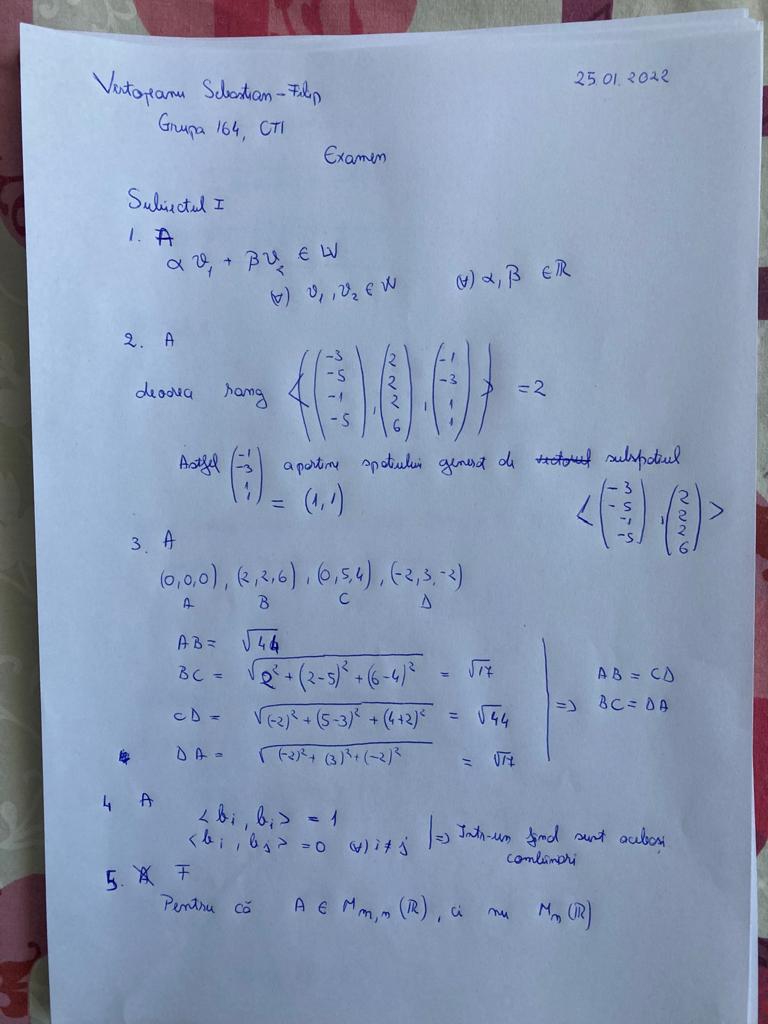 Vertopeanu Sebastian-Filip 25.01.2022
Grupa 164, CTI
Examen
Subiectul I
1. A
α v₁ + β v₂ ∈ W
(∀) v₁, v₂ ∈ W (∀) α, β ∈ ℝ
2. A
deoarea rang <(-3 -5 -1 -5), (2 2 2 6), (-1 -3 1 1)> = 2
Astfel (-1 -3 1 1) apartine spatiului generat de subspatiul
= (1,1) <(-3 -5 -1 -5), (2 2 2 6)>
3. A
(0,0,0), (2,2,6), (0,5,4), (-2,3,-2)
A B C D
AB = √44
BC = √(2² + (2-5)² + (6-4)²) = √17 AB = CD
CD = √((-2)² + (5-3)² + (4+2)²) = √44 => BC = DA
DA = √((-2)² + (3)² + (-2)²) = √17
4 A
<bᵢ, bᵢ> = 1
<bᵢ, bⱼ> = 0 (∀) i ≠ j => Într-un fond sunt aceleași
combinări
5. A F
Pentru că A ∈ Mₘ,ₙ(ℝ), ci nu Mₙ(ℝ)